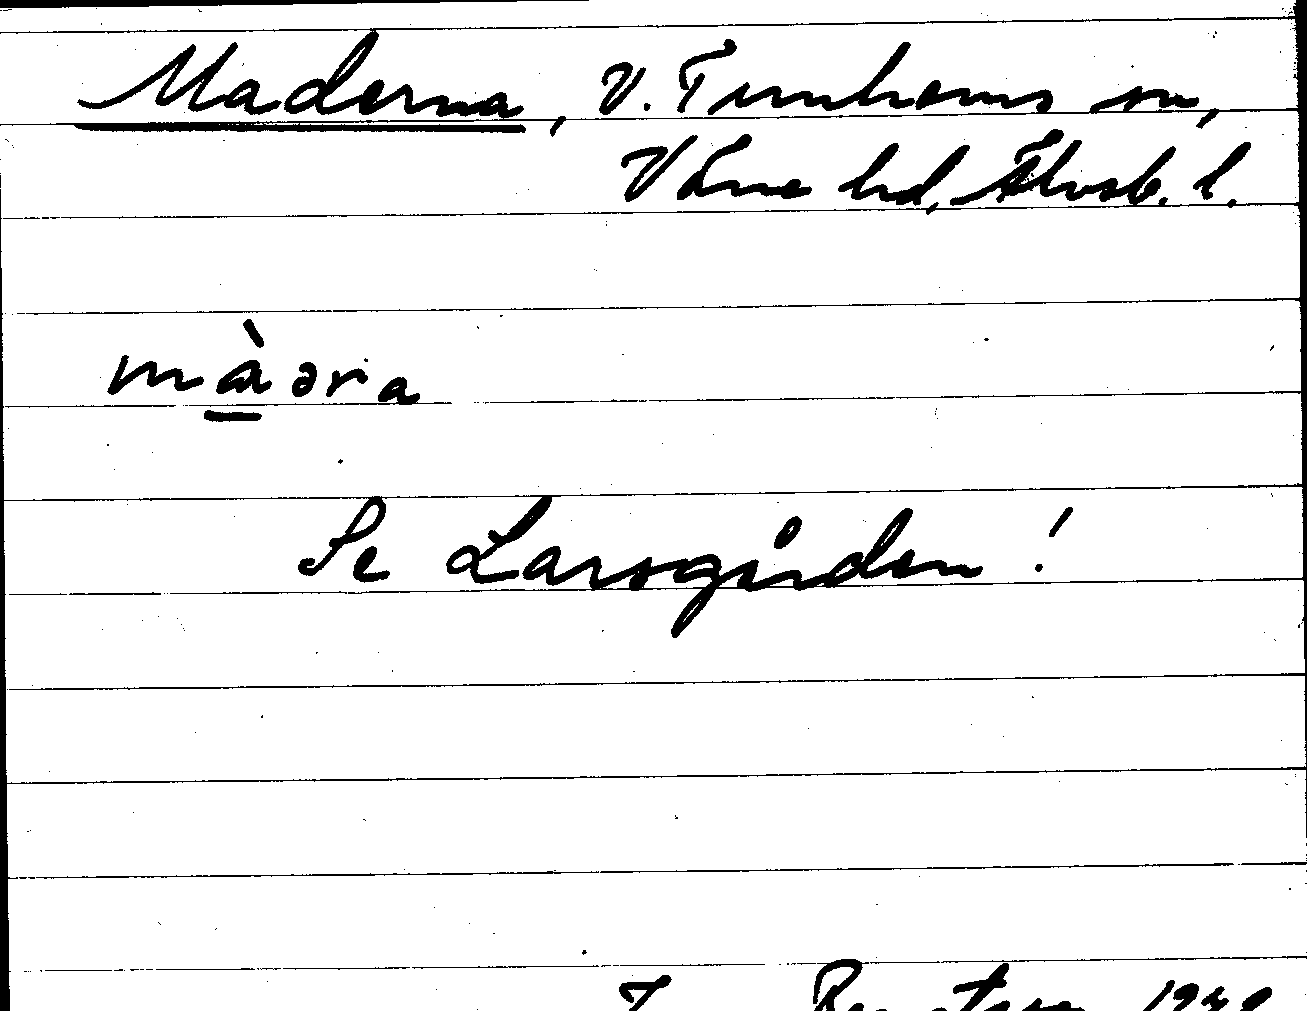 Maderna, V. Tunhems sn,
Väne hd, Älvsb. l.
màəra
Se Larsgården!